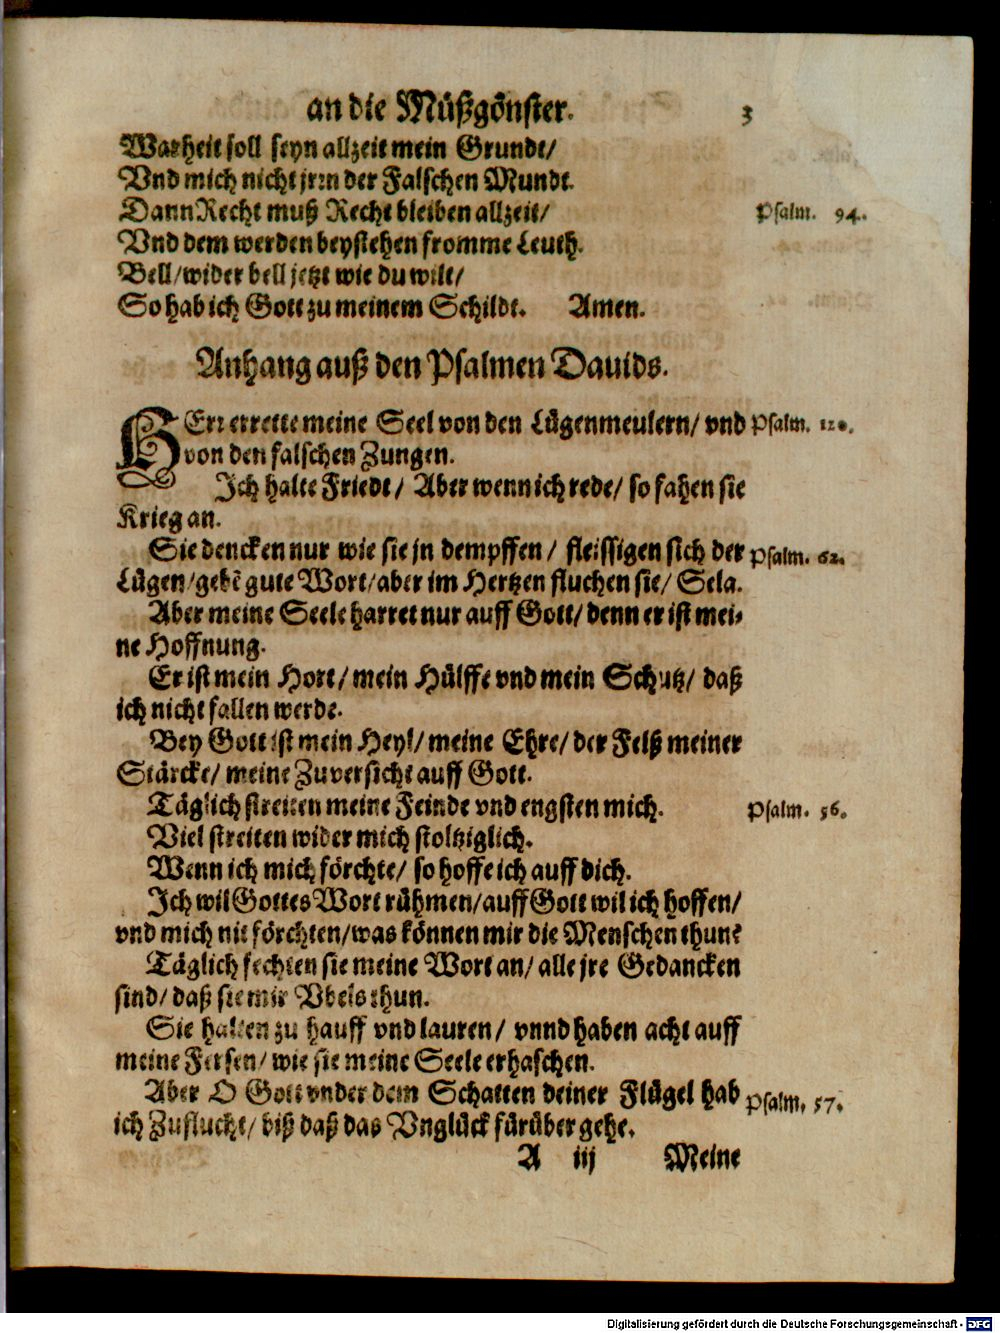 an die Müßgönster. 3
Warheit soll seyn allzeit mein Grundt/
Vnd mich nicht jrrn der Falschen Mundt.
Dann Recht muß Recht bleiben allzeit/ Psalm. 94.
Vnd dem werden beystehen fromme Leuth.
Bell/wider bell jetzt wie du wilt/
So hab ich Gott zu meinem Schildt. Amen.
Anhang auß den Psalmen Dauids.
HErr errette meine Seel von den Lügenmeulern/ vnd Psalm. 120.
von den falschen Zungen.
Ich halte Friedt/ Aber wenn ich rede/ so fahen sie
Krieg an.
Sie dencken nur wie sie jn dempffen/ fleissigen sich der Psalm. 62.
Lügen/gebẽ gute Wort/aber im Hertzen fluchen sie/ Sela.
Aber meine Seele harret nur auff Gott/ denn er ist mei-
ne Hoffnung.
Er ist mein Hort/ mein Hülffe vnd mein Schutz/ daß
ich nicht fallen werde.
Bey Gott ist mein Heyl/ meine Ehre/ der Felß meiner
Stärcke/ meine Zuversicht auff Gott.
Täglich streitten meine Feinde vnd engsten mich. Psalm. 56.
Viel streiten wider mich stoltziglich.
Wenn ich mich förchte/ so hoffe ich auff dich.
Ich wil Gottes Wort rühmen/auff Gott wil ich hoffen/
vnd mich nit förchten/was können mir die Menschen thun?
Täglich fechten sie meine Wort an/ alle jre Gedancken
sind/ daß sie mir Vbels thun.
Sie halten zu hauff vnd lauren/ vnnd haben acht auff
meine Fersen/ wie sie meine Seele erhaschen.
Aber O Gott vnder dem Schatten deiner Flügel hab Psalm. 57.
ich Zuflucht/ biß daß das Vnglück fürüber gehe.
A iij Meine
Digitalisierung gefördert durch die Deutsche Forschungsgemeinschaft - DFG